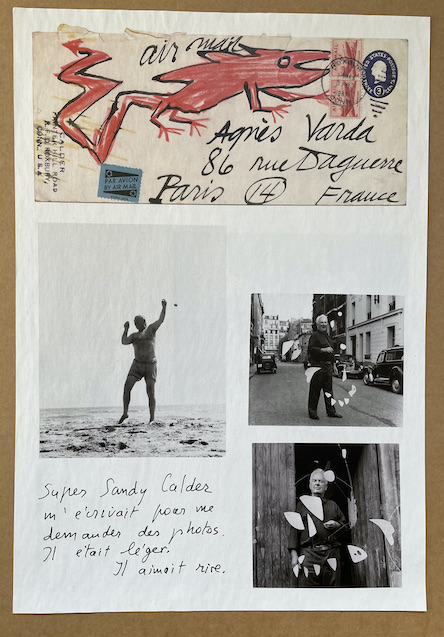 air mail
UNITED STATES POSTAGE
3
CALDER
PAINTER HILL ROAD
ROXBURY
CONN. U.S.A.
PAR AVION
BY AIR MAIL
Agnès Varda
86 rue Daguerre
Paris (14) France
Super Sandy Calder
m'écrivait pour me
demander des photos.
Il était léger.
Il aimait rire.